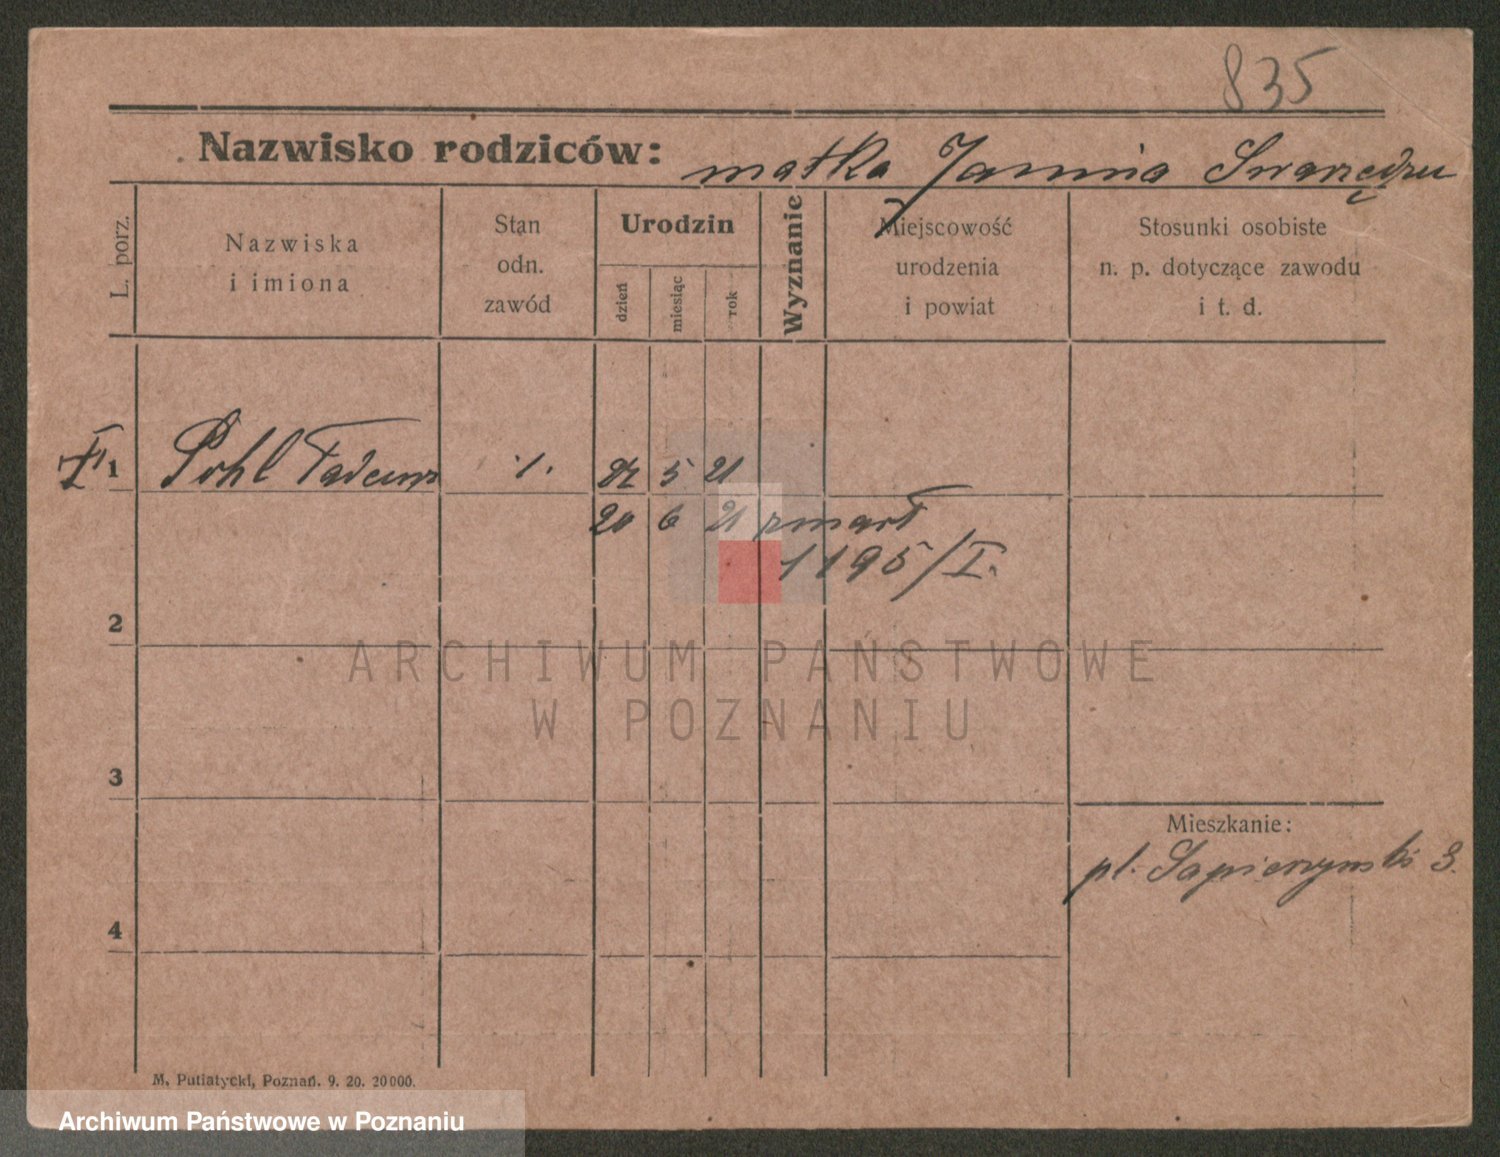 835
Nazwisko rodziców: matka Janina Swarzędzu
L. porz.
Nazwiska
i imiona
Stan
odn.
zawód
Urodzin
dzień
miesiąc
rok
Wyznanie
Miejscowość
urodzenia
i powiat
Stosunki osobiste
n. p. dotyczące zawodu
i t. d.
1 Pohl Tadeusz ·/. 5 21
20 6 21 zmarł
1195/I.
2
ARCHIWUM PAŃSTWOWE
W POZNANIU
3
Mieszkanie:
pl. Sapieżyński 3.
4
M. Putiatycki, Poznań. 9. 20. 20000.
Archiwum Państwowe w Poznaniu